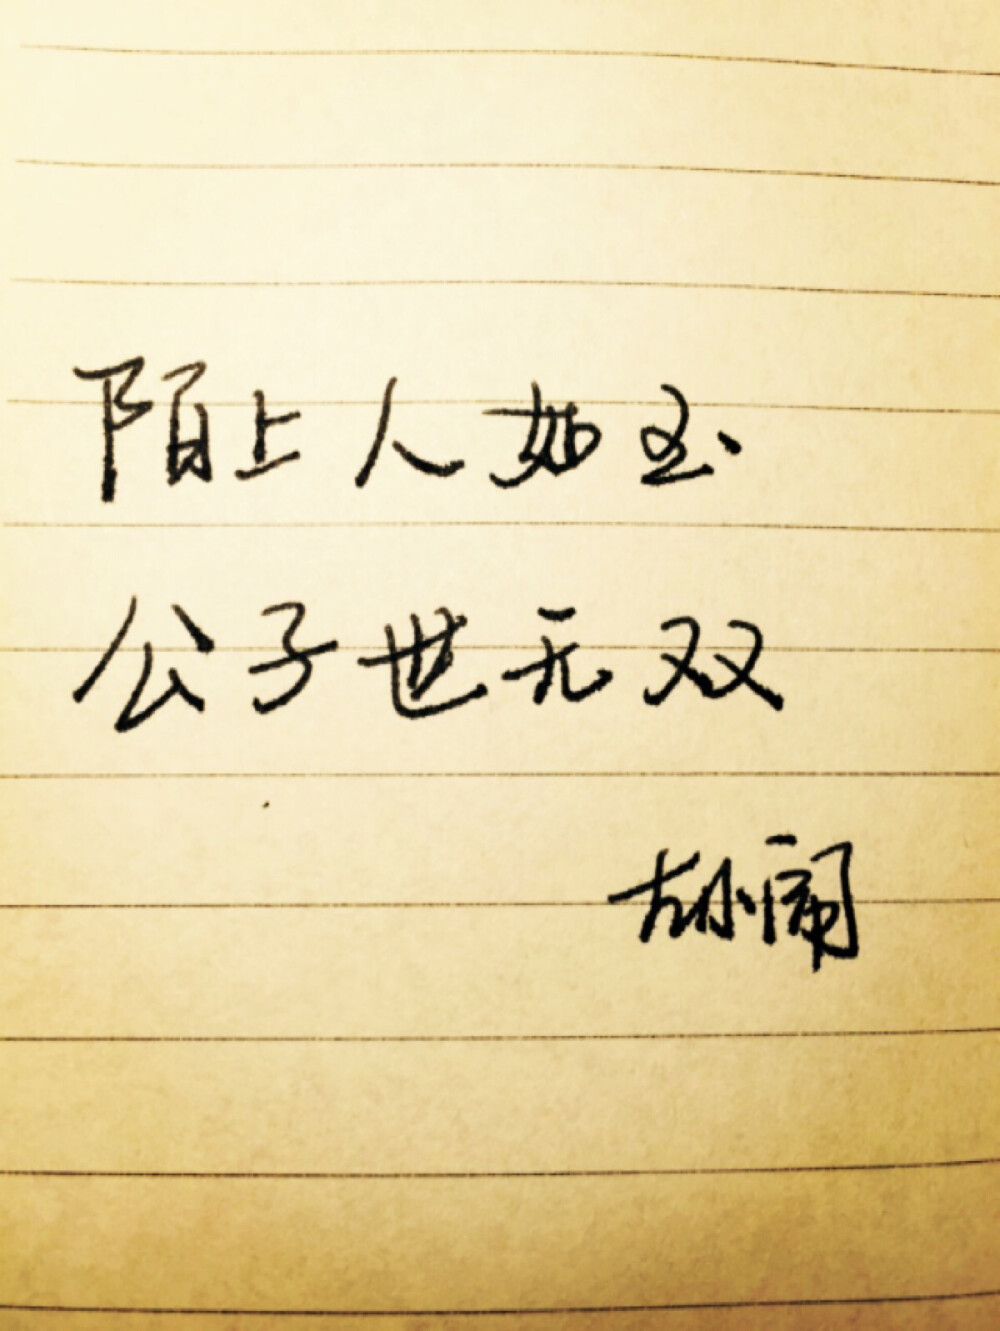 陌上人如玉
公子世无双
胡闹